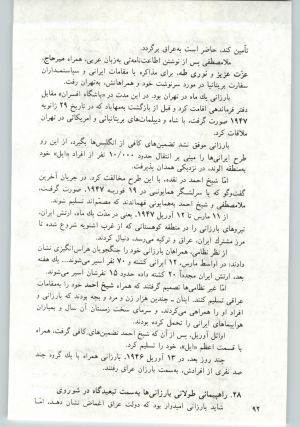 تأمین کند، حاضر است به‌عراق برگردد.
ملامصطفی پس از نوشتن اطاعت‌نامه‌ئی به‌زبان عربی، همراه میرحاج،
عزّت عزیز و نوری طه، برای مذاکره با مقامات ایرانی و سیاستمداران
سفارت بریتانیا در مورد سرنوشت خود و همراهانش، به‌تهران رفت.
بارزانی یك ماه در تهران بود. در این مدت در «باشگاه افسران» مقابل
دفتر فرماندهی اقامت کرد و قبل از بازگشت به‌مهاباد که در تاریخ ۲۹ ژانویه
۱۹۴۷ صورت گرفت، با شاه و دیپلمات‌های بریتانیائی و آمریکائی در تهران
ملاقات کرد.
بارزانی موفق نشد تضمین‌های کافی از انگلیس‌ها بگیرد، از این رو
طرح ایرانی‌ها را مبنی بر انتقال حدود ۱۰/۰۰۰ نفر از افراد «ایل» خود
به‌منطقه الوند، در نزدیکی همدان پذیرفت.
امّا شیخ احمد در نقده، با این طرح مخالفت کرد. در جریان آخرین
گفت‌وگو که با سرلشگر همایونی در ۱۹ فوریه ۱۹۴۷، صورت گرفت،
ملامصطفی و شیخ احمد به‌همایونی فهماندند که مصمّم‌اند تسلیم شوند.
از ۱۱ مارس تا ۱۲ آوریل ۱۹۴۷، یعنی در مدّت یك ماه، ارتش ایران،
نیروهای بارزانی را در منطقه کوهستانی که از غرب اشنویه شروع شده تا
مرز مشترك ایران، عراق و ترکیه می‌رسد، دنبال کردند.
از نظر نظامی، همراهان بارزانی خود را جنگجویان هراس‌انگیزی نشان
دادند، در اواسط مارس، ۱۲ ایرانی کشته و ۷۰ نفر اسیر می‌شوند... یك هفته
بعد، ارتش ایران مجدداً ۲۰ کشته داده حدود ۱۵ نفرشان اسیر می‌شوند.
امّا غیر نظامی‌ها تصمیم گرفتند که همراه شیخ احمد خود را به‌مقامات
عراقی تسلیم کنند. اینان ـ چندین هزار زن و مرد و بچه بودند که بارزانی و
افراد او را همراهی می‌کردند، و سرمای سخت زمستان آن سال و بمباران
هواپیماهای ایرانی را تحمل کرده بودند.
اوائل آوریل، پس از آن که شیخ احمد تضمین‌های کافی گرفت، همراه
با قسمت اعظم «ایل»، خود را تسلیم کرد.
چند روز بعد، در ۱۳ آوریل ۱۹۴۶، بارزانی همراه با یك گروه چند
صد نفری از افرادش، به‌سمت بارزان عراق رفتند.
۲۸. راهپیمائی طولانی بارزانی‌ها به‌سمت تبعیدگاه در شوروی
شاید بارزانی امیدوار بود که دولت عراق اغماض نشان دهد، امّا
۹۲